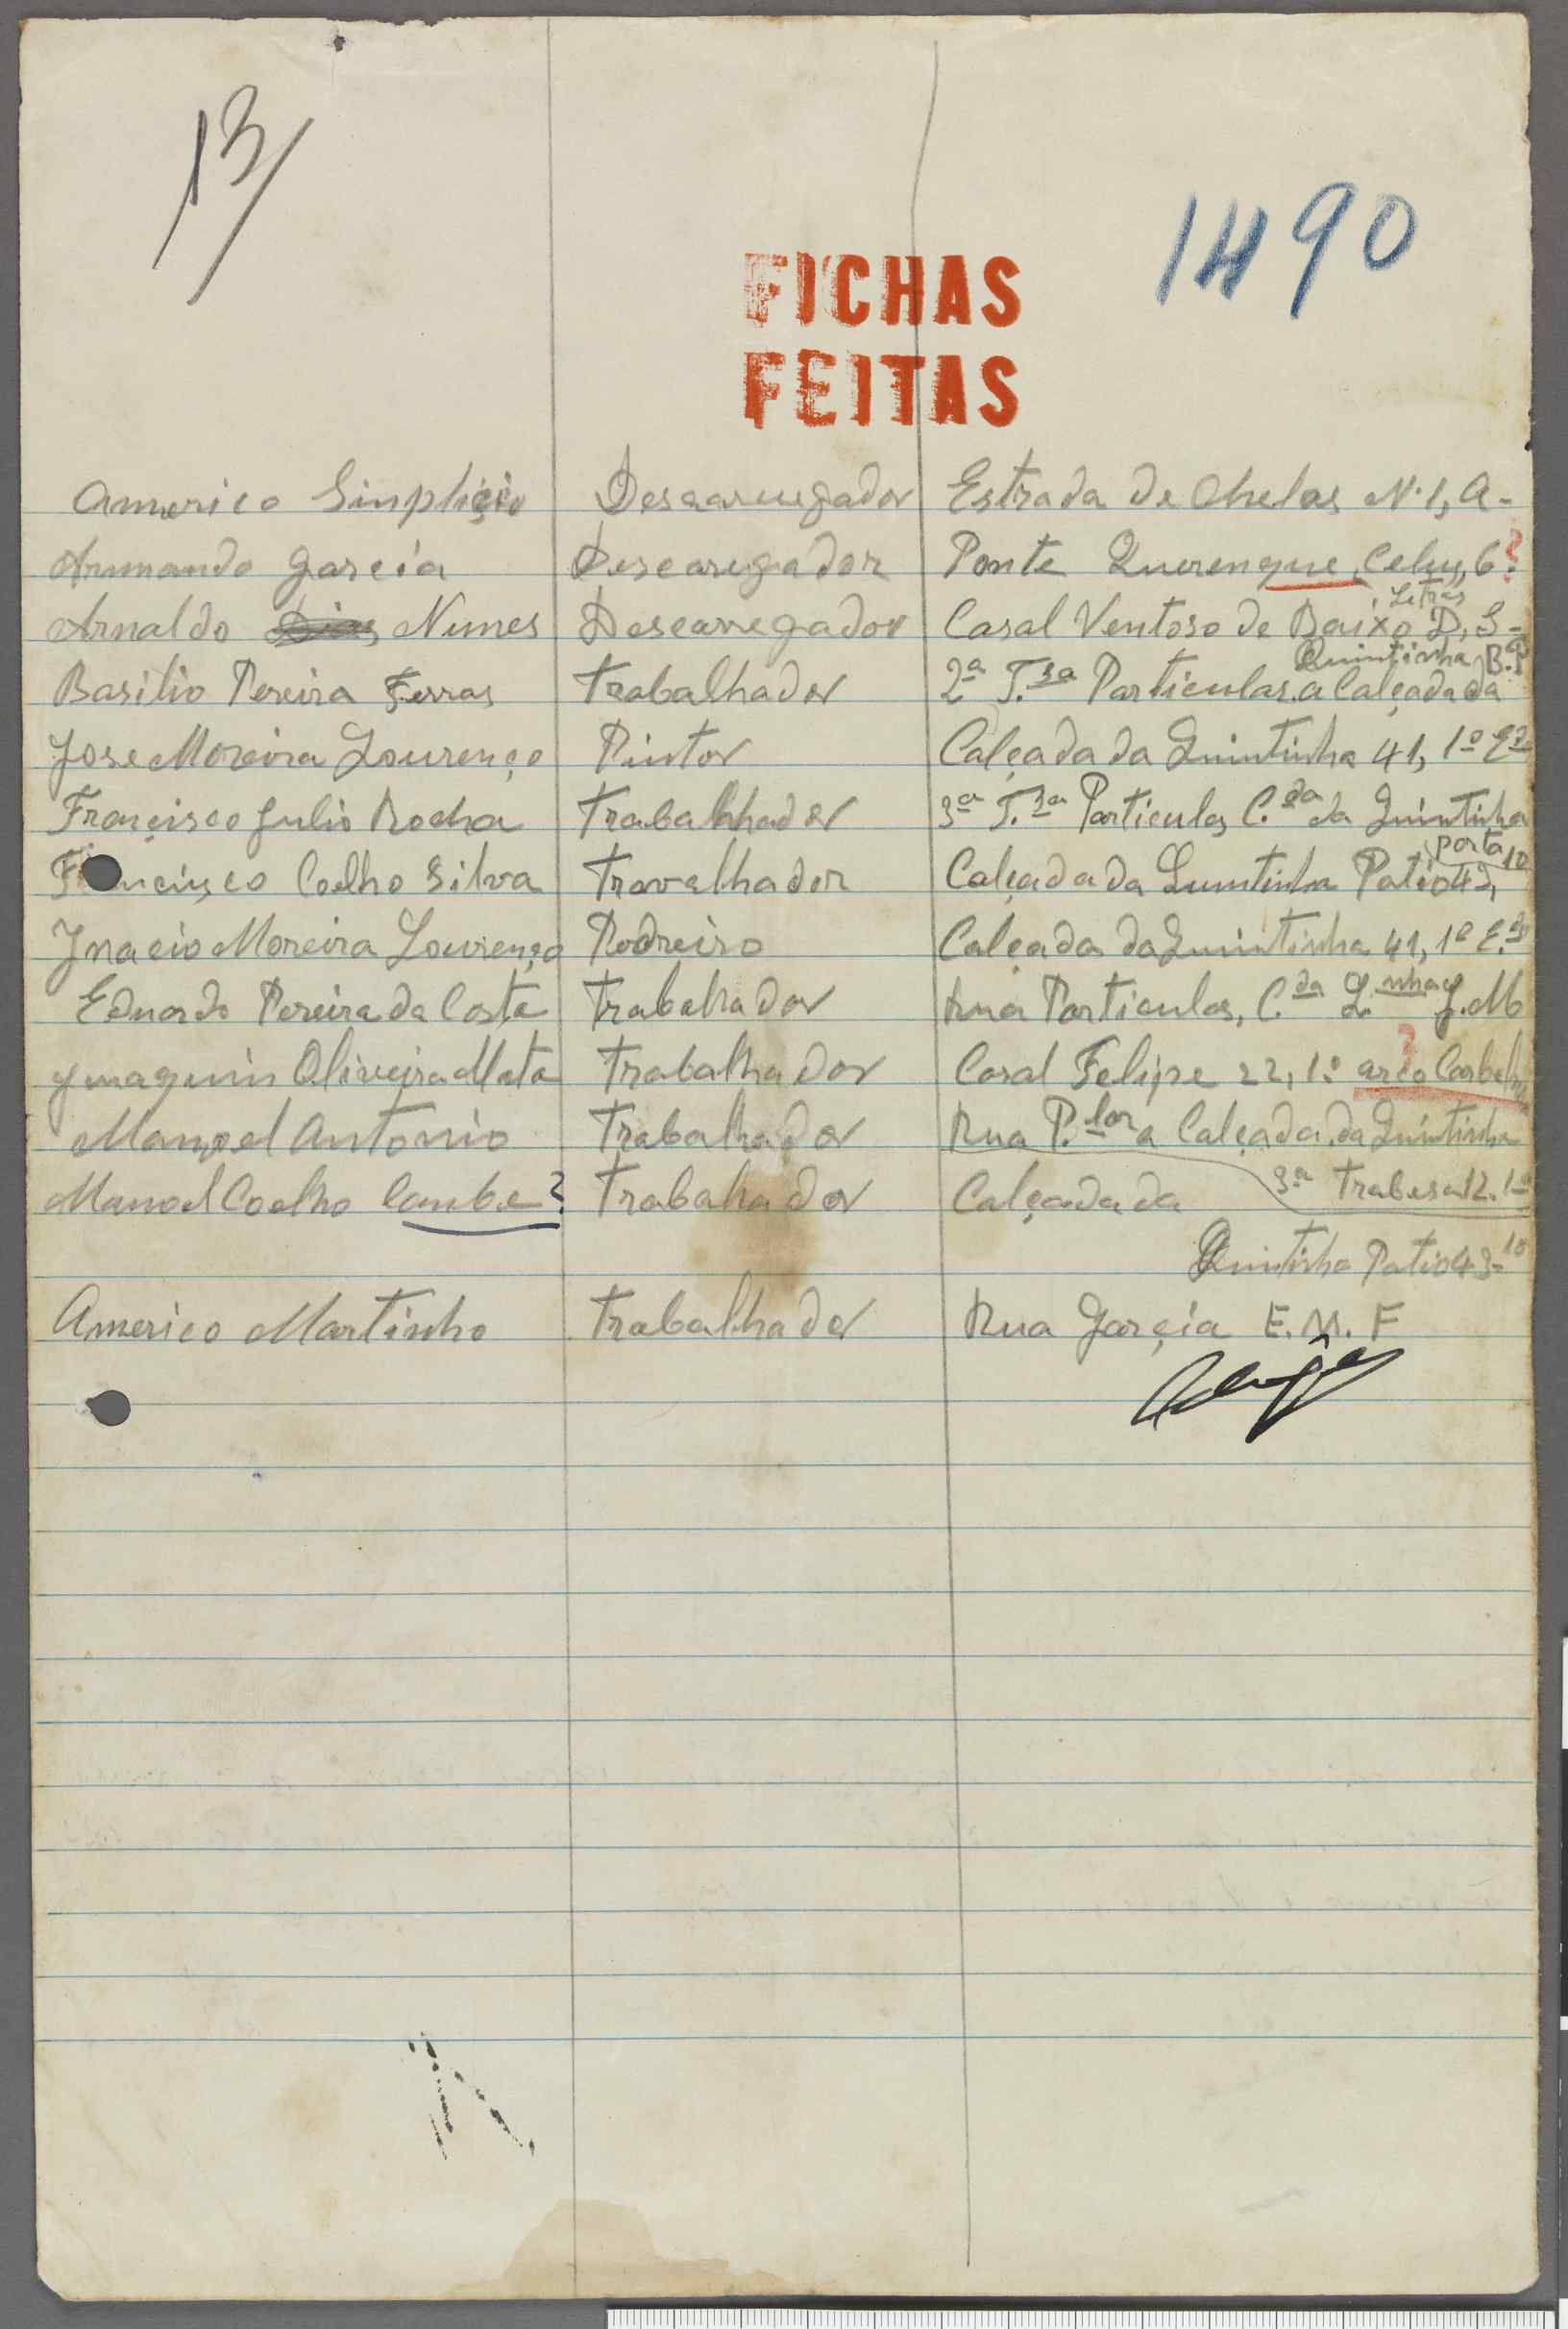 13
1490
FICHAS
FEITAS
Americo Simplicio Descarregador Estrada de Chelas N.1, A-
Armando Garcia Descaregador Ponte Querenque, Celuy, 6?
Letras
Arnaldo Nunes Descarregador Casal Ventoso de Baixo D, S-
Quintinha B.P
Basilio Pereira Ferras Trabalhador 2ª T.sa Particular a Calçada da
Jose Moreira Lourenço Pintor Calçada da Quintinha 41, 1º Edo
Françisco Julio Rocha Trabalhador 3ª T.sa Particular C.da da Quintinha
porta 10
Françisco Coelho Silva Travalhador Calçada da Quintinha Patio 42,
Ynacio Moreira Lourenço Podreiro Calçada da Quintinha 41, 1º E.do
Eduardo Pereira da Costa Trabalhador Rua Particular, C.da Q.nha J.M
Oliveira Mata Trabalhador Casal Felipe 22, 1º arco ?
Manoel Antonio Trabalhador Rua P.lar a Calçada da Quintinha
3ª Trabesa 12.1º
Manoel Coelho Lambe? Trabalhador Calçada da
Quintinha Patio 43-10
Americo Martinho Trabalhador Rua Garçia E.M.F